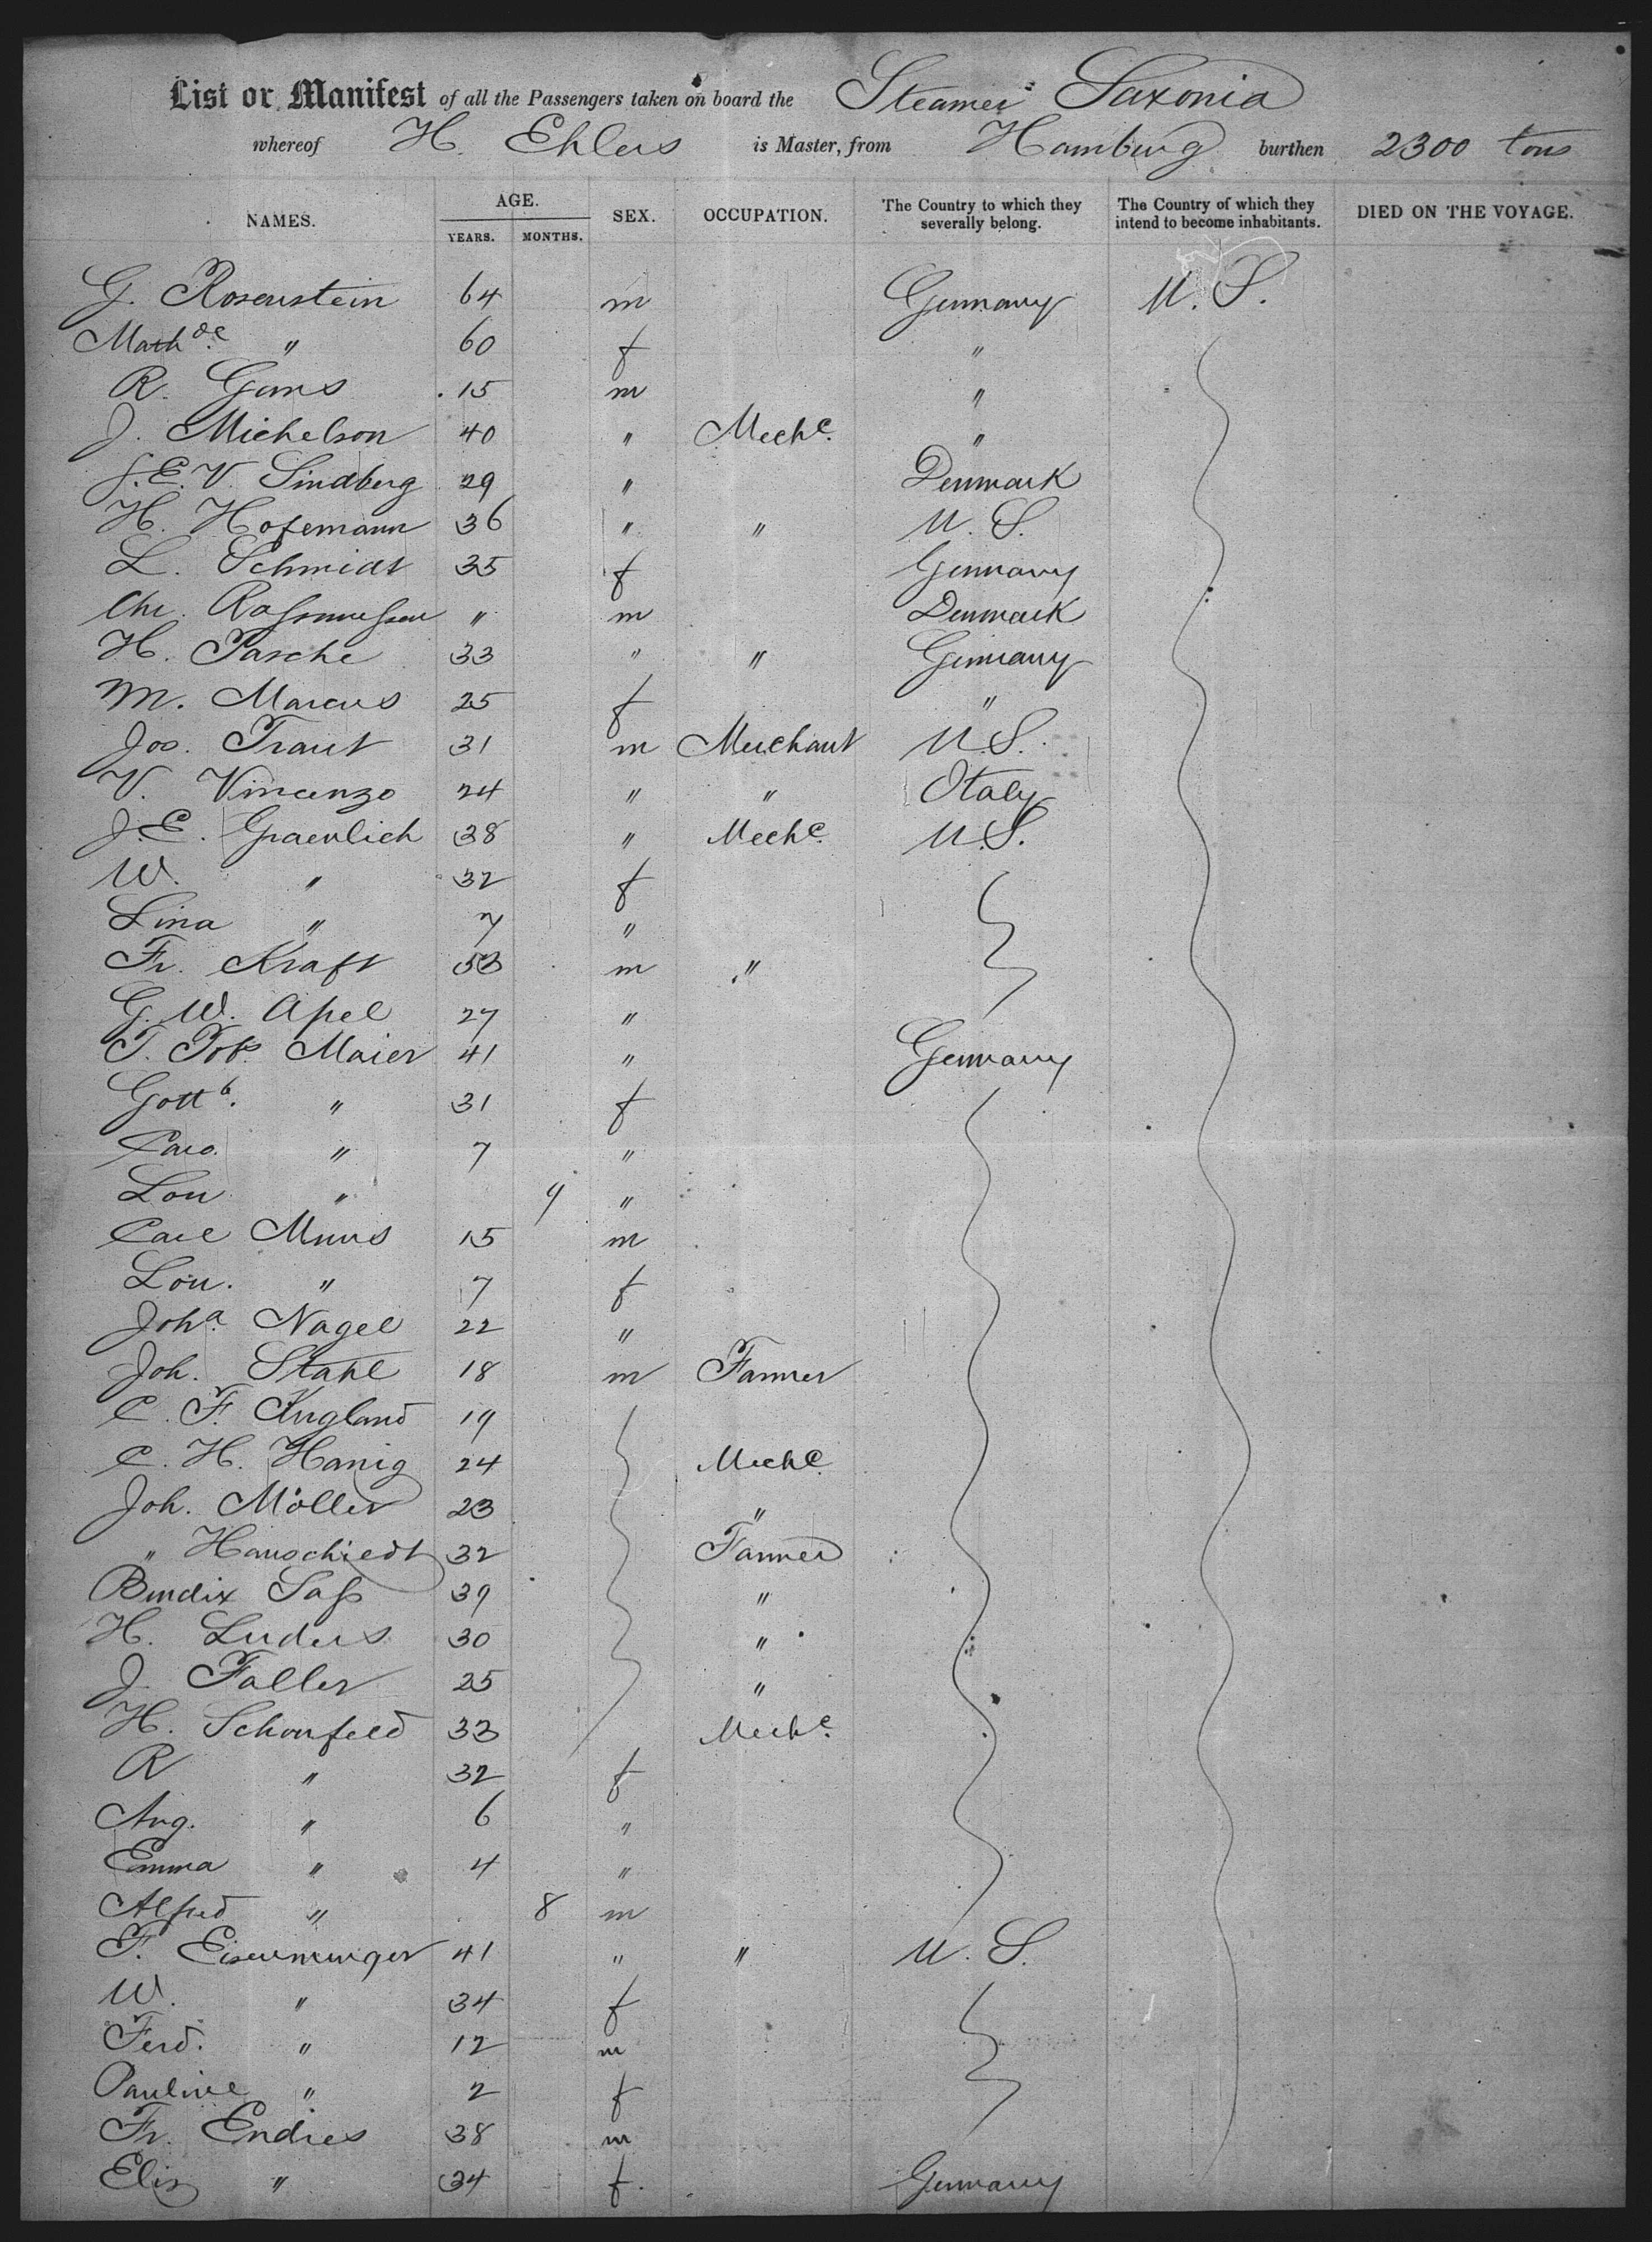 List or Manifest of all the Passengers taken on board the Steamer Saxonia
whereof H. Ehlers is Master, from Hamburg burthen 2300 tons
NAMES. AGE. YEARS. MONTHS. SEX. OCCUPATION. The Country to which they severally belong. The Country of which they intend to become inhabitants. DIED ON THE VOYAGE.
G. Rosenstein 64 m Germany U.S.
Mathde. " 60 f "
R. Gans 15 m "
J. Michelson 40 " Mechc. "
J.E.V. Sindberg 29 " Denmark
H. Hofemann 36 " " U.S.
L. Schmidt 35 f Germany
Chr. Rassmussen " m Denmark
H. Pasche 33 " " Germany
M. Marcus 25 f "
Jos. Traut 31 m Merchant U.S.
V. Vincenzo 24 " " Italy
J.E. Graenlich 38 " Mechc. U.S.
W. " 32 f
Lina " 7 "
Fr. Kraft 53 m "
G.W. Apel 27 "
T. Tob. Maier 41 " Germany
Gottb. " 31 f
Caro. " 7 "
Lou " 9 "
Carl Muus 15 m
Lou. " 7 f
Joha. Nagel 22 "
Joh. Stahl 18 m Farmer
C.F. Kugland 19
C.H. Hanig 24 Mechc.
Joh. Möller 23 "
" Hauschiedt 32 Farmer
Bendix Sass 39 "
H. Luders 30 "
J. Faller 25 "
H. Schonfeld 33 Mechc.
R " 32 f
Aug. " 6 "
Emma " 4 "
Alfred " 8 m
F. Eisenmenger 41 " " U.S.
W. " 34 f
Ferd. " 12 m
Pauline " 2 f
Fr. Endres 38 m
Elis " 34 f Germany